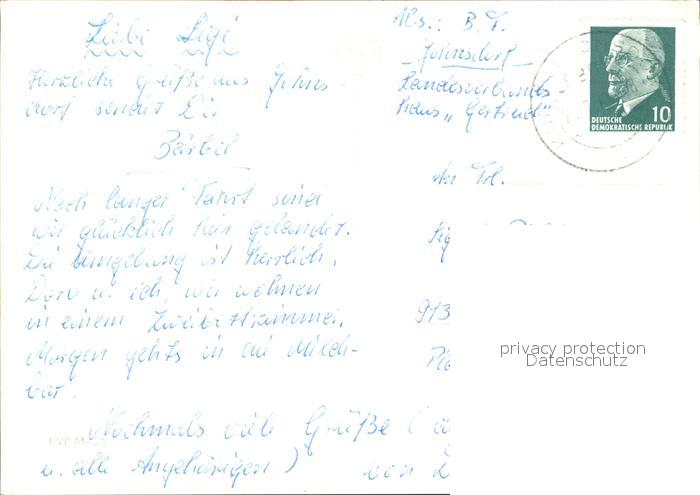 Liebe Sigi
Herzliche Grüße aus Johns-
dorf sendet Dir
Bärbel
Nach langer Fahrt sind
wir glücklich hier gelandet.
Die Umgebung ist herrlich.
Dora u. ich, wir wohnen
in einem Zweibettzimmer.
Morgen gehts in die Milch-
bar.
Nochmals viele Grüße (a
u. alle Angehörigen)
von
Abs.: B. T.
Jonsdorf
Landesverbands-
Haus „Gertrud“
An Frl.
Sig
913
Pla
10
DEUTSCHE
DEMOKRATISCHE REPUBLIK
EVP M
privacy protection
Datenschutz